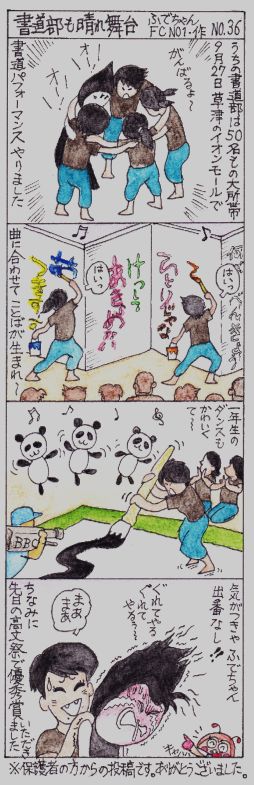 書道部も晴れ舞台
ふでちゃん
FCNO1・作 NO.36
うちの書道部は50名もの大所帯
9月27日草津のイオンモールで
がんばるよ〜
オー!
オー!
書道パフォーマンスやりました
はいっ
ひとりじゃない
けっして
あきらめない
はいっ
曲に合わせてことばが生まれ
一年生の
ダンスも
かわいく
て〜
BBC
気がつきゃふでちゃん
出番なし!!
ぐれてやる
ぐれて
やるぅ〜
まぁ
まぁ
ちなみに
先日の高文祭で優秀賞いただきました
キャハ
※保護者の方からの投稿です。ありがとうございました。